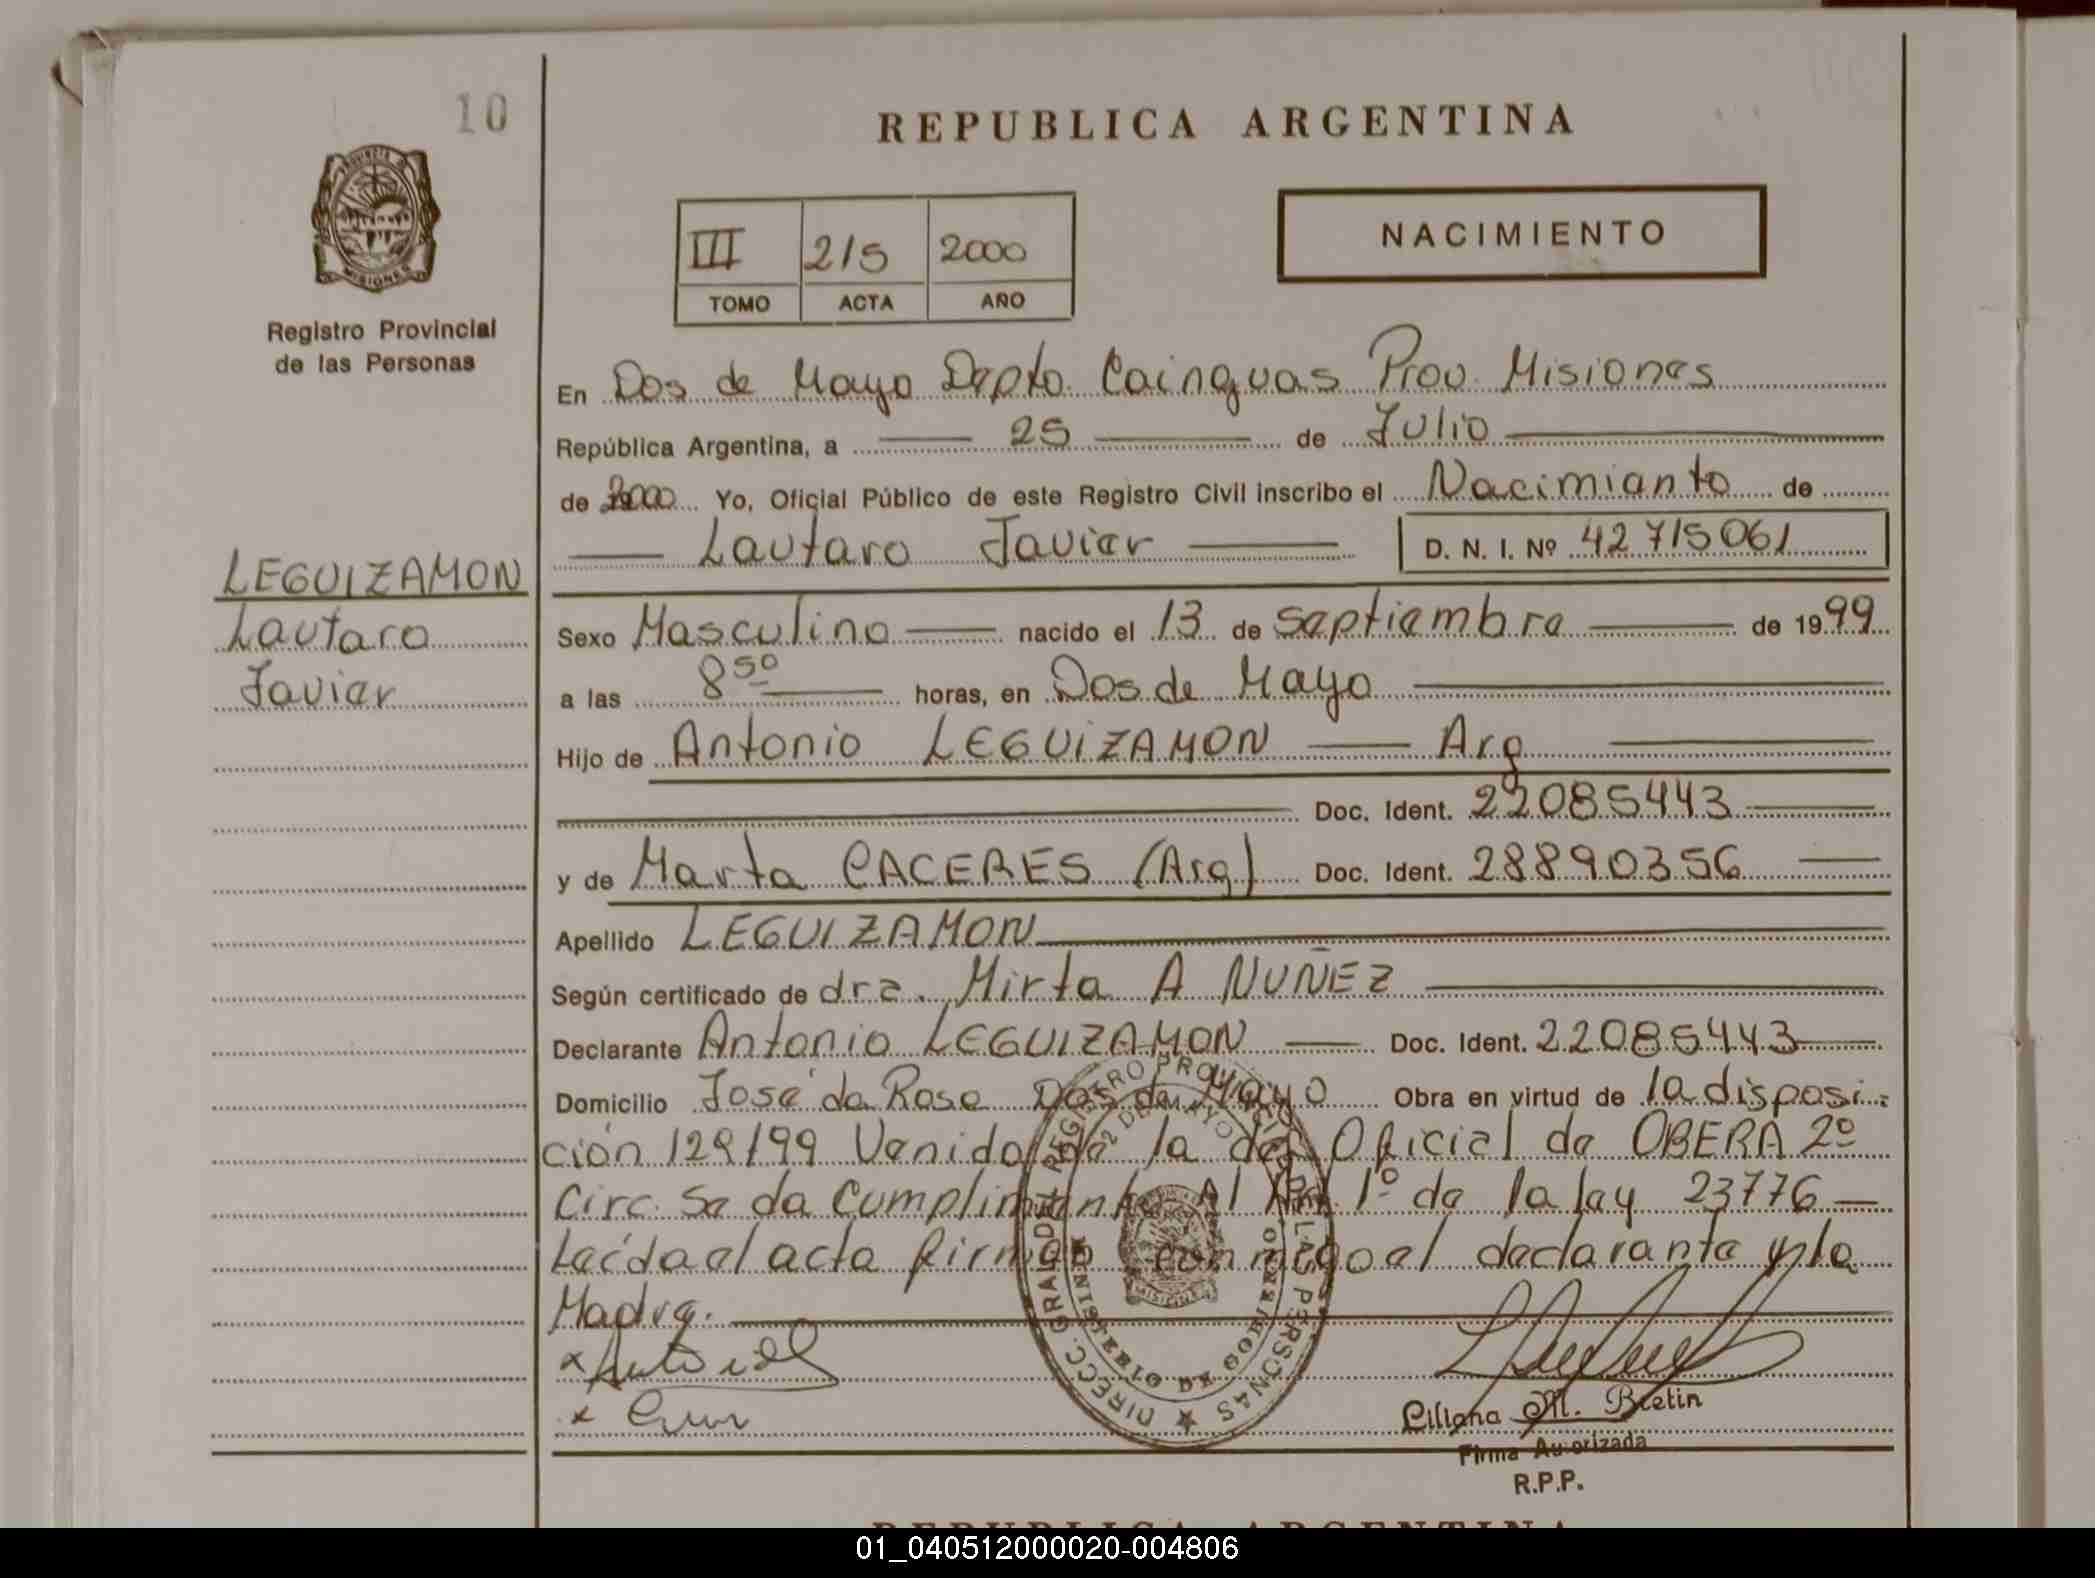 10
REPUBLICA ARGENTINA
III 215 2000
TOMO ACTA AÑO
NACIMIENTO
MISIONES
Registro Provincial
de las Personas
En Dos de Mayo Depto. Cainguas Prov. Misiones
República Argentina, a 25 de Julio
de 2000 Yo, Oficial Público de este Registro Civil inscribo el Nacimianto de
Lautaro Javier D. N. I. Nº 42715061
LEGUIZAMON
Lautaro
Javier
Sexo Masculino nacido el 13 de septiembre de 1999
a las 8 50 horas, en Dos de Mayo
Hijo de Antonio LEGUIZAMON Arg
Doc. Ident. 22085443
y de Marta CACERES (Arg) Doc. Ident. 28890356
Apellido LEGUIZAMON
Según certificado de dra. Mirta A NUÑEZ
Declarante Antonio LEGUIZAMON Doc. Ident. 22085443
Domicilio José da Rosa Dos de Mayo Obra en virtud de la disposi-
ción 129/99 Venida de la del Oficial de OBERA 2º
Circ. Se da Cumplimiento Al Art 1º de la ley 23776
Leída el acta firman conmigo el declarante y la
Madre.
DIRECC. GRAL. DEL REGISTRO PROVINCIAL DE LAS PERSONAS
2 DE MAYO
MINISTERIO DE GOBIERNO
MISIONES
Liliana M. Bretin
Firma Autorizada
R.P.P.
REPUBLICA ARGENTINA
01_040512000020-004806